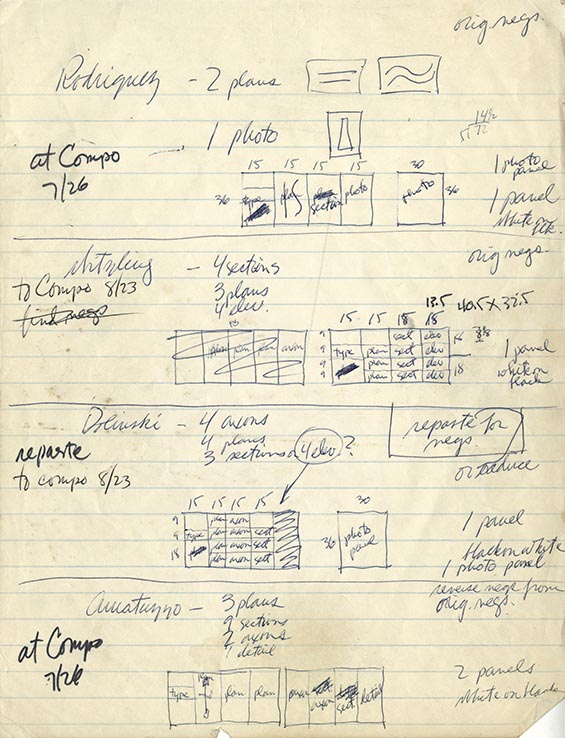 orig. negs.
Rodriguez - 2 plans
1 photo
at Compo
7/26
14 1/2
5 72
15 15 15 15 30
36 type plan section photo photo 36
1 photo panel
1 panel
white on
orig. negs.
- 4 sections
3 plans
4 elev.
to Compo 8/23
find negs
13.5 40.5 x 32.5
15 15 18 18
15
plan plan plan axon
9 sect elev
9 type plan sect elev
9 plan sect elev
9 plan sect elev
18
18
1 panel
white on
black
- 4 axons
4 plans
3 sections or 4 elev ?
reparste
to compo 8/23
repaste for
negs.
or reduce
15 15 15 15
9 plan axon
9 type plan axon sect
18 plan axon sect
plan axon sect
30
36 photo
panel
1 panel
black on white
1 photo panel
reverse negs from
orig. negs.
Amatuzzo - 3 plans
9 sections
2 axons
1 detail
at Compo
7/26
type plan plan
axon axon sect detail
2 panels
white on black